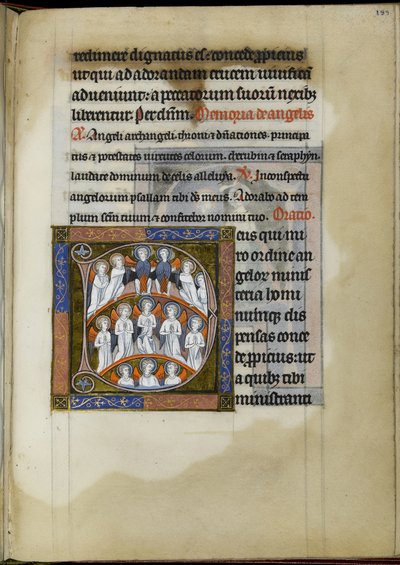 redimere dignatus es: concede ꝓpicius
ut qui ad adorandam crucem uiuificā
adueniunt: a peccatorum suorū nexibꝫ
liberentur. Per dn̄m. Memoria de angelis
A. Angeli archangeli throni ⁊ dn̄ationes. principa
tus ⁊ potestates uirtutes celorum. cherubin ⁊ seraphyn.
laudate dominum de celis alleluya. V. In conspectu
angelorum psallam tibi ds̄ meus. Adorabo ad tem
plum sc̄m tuum ⁊ confitebor nomini tuo. Oratio.
eus qui mi
ro ordine an
gelorū minis
teria homi
numqꝫ dis
pensas conce
de ꝓpicius: ut
a quibꝫ tibi
ministranti